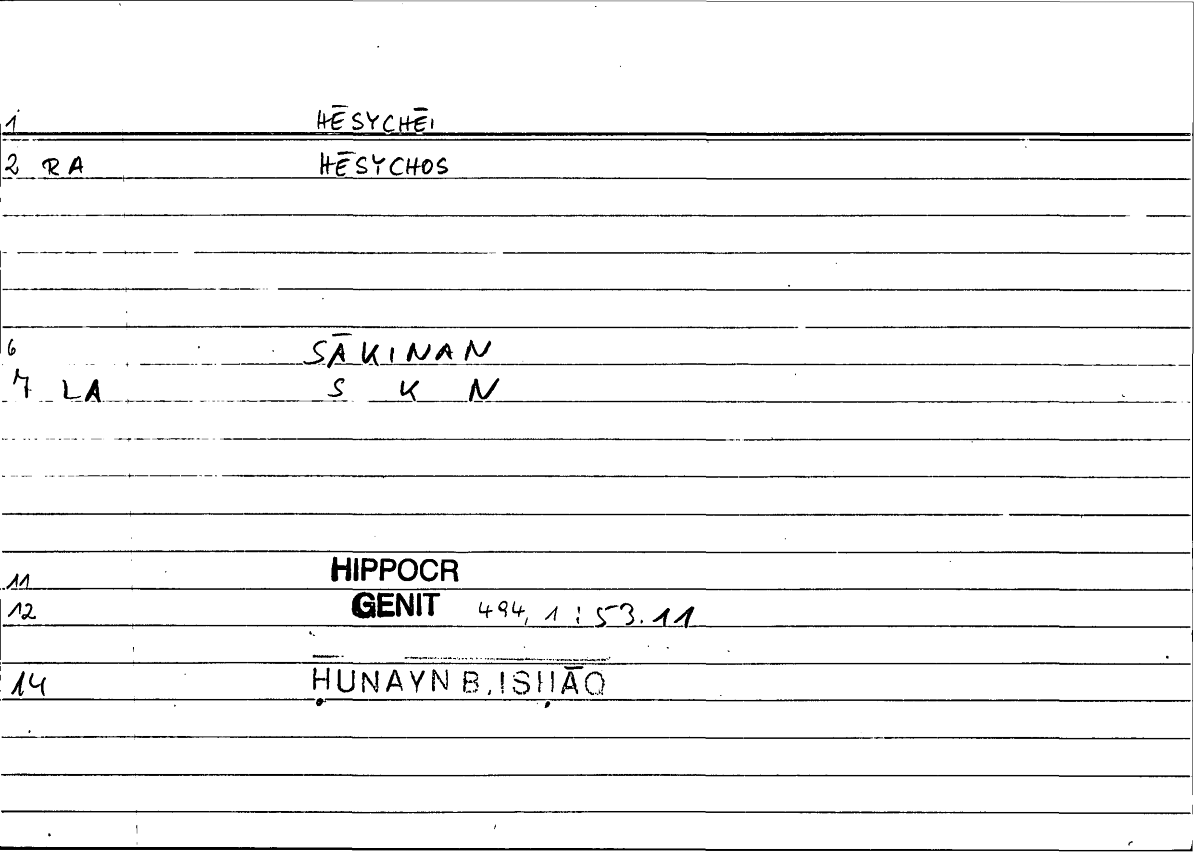 1 HĒSYCHĒI
2 RA HĒSYCHOS
6 SĀKINAN
7 LA S K N
11 HIPPOCR
12 GENIT 494, 1 : 53.11
14 ḤUNAYN B. ISḤĀQ